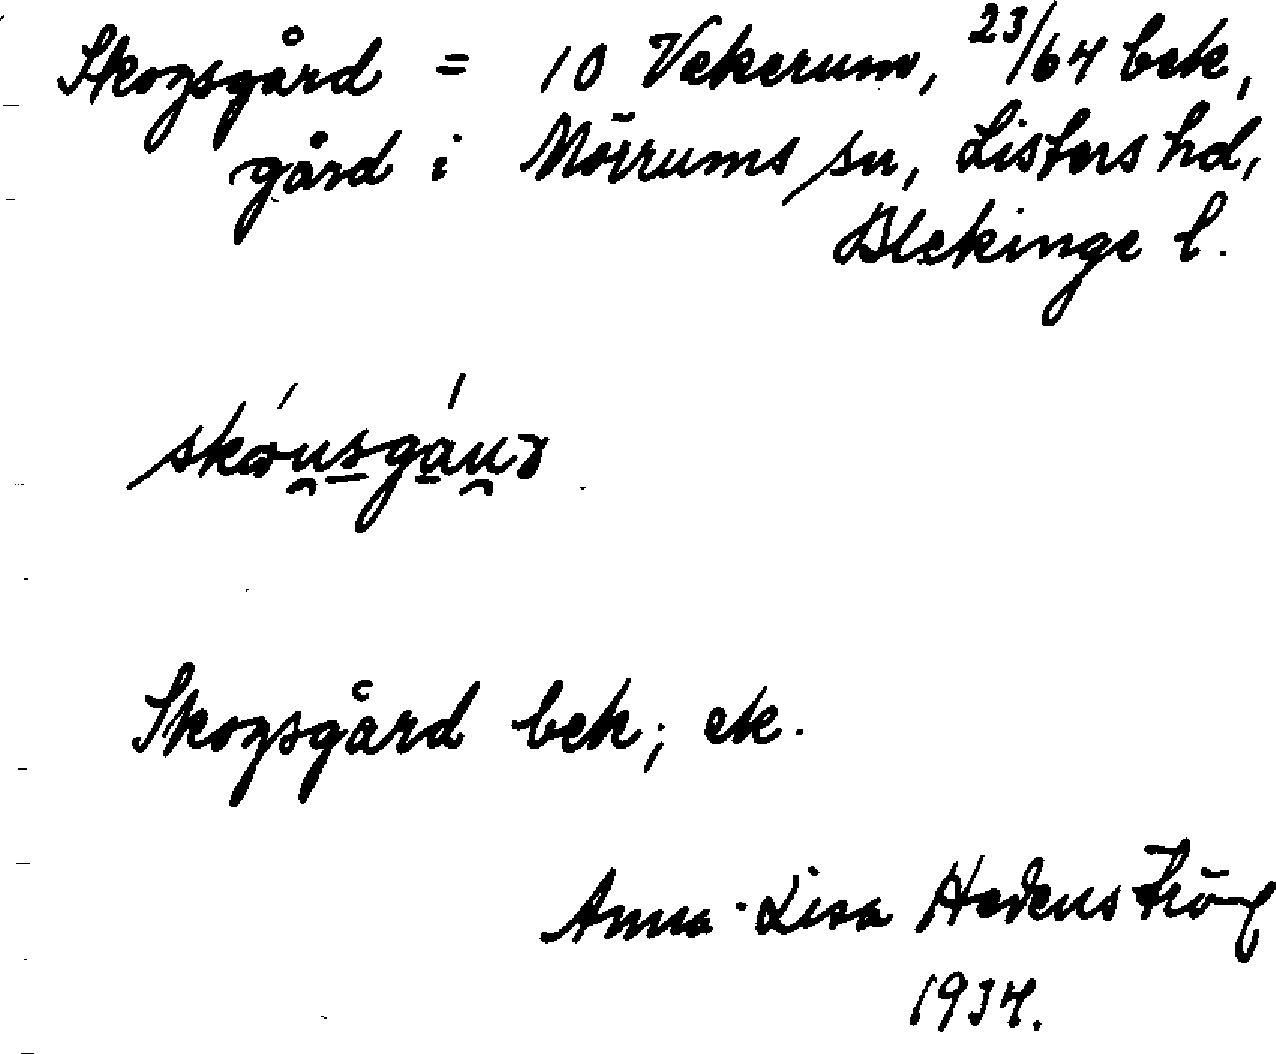 Skogsgård = 10 Vekerum, 23/64 bek,
gård i Mörrums sn, Listers hd,
Blekinge l.
Skogsgård bek; ek.
Anna-Lisa Hedenström
1934.